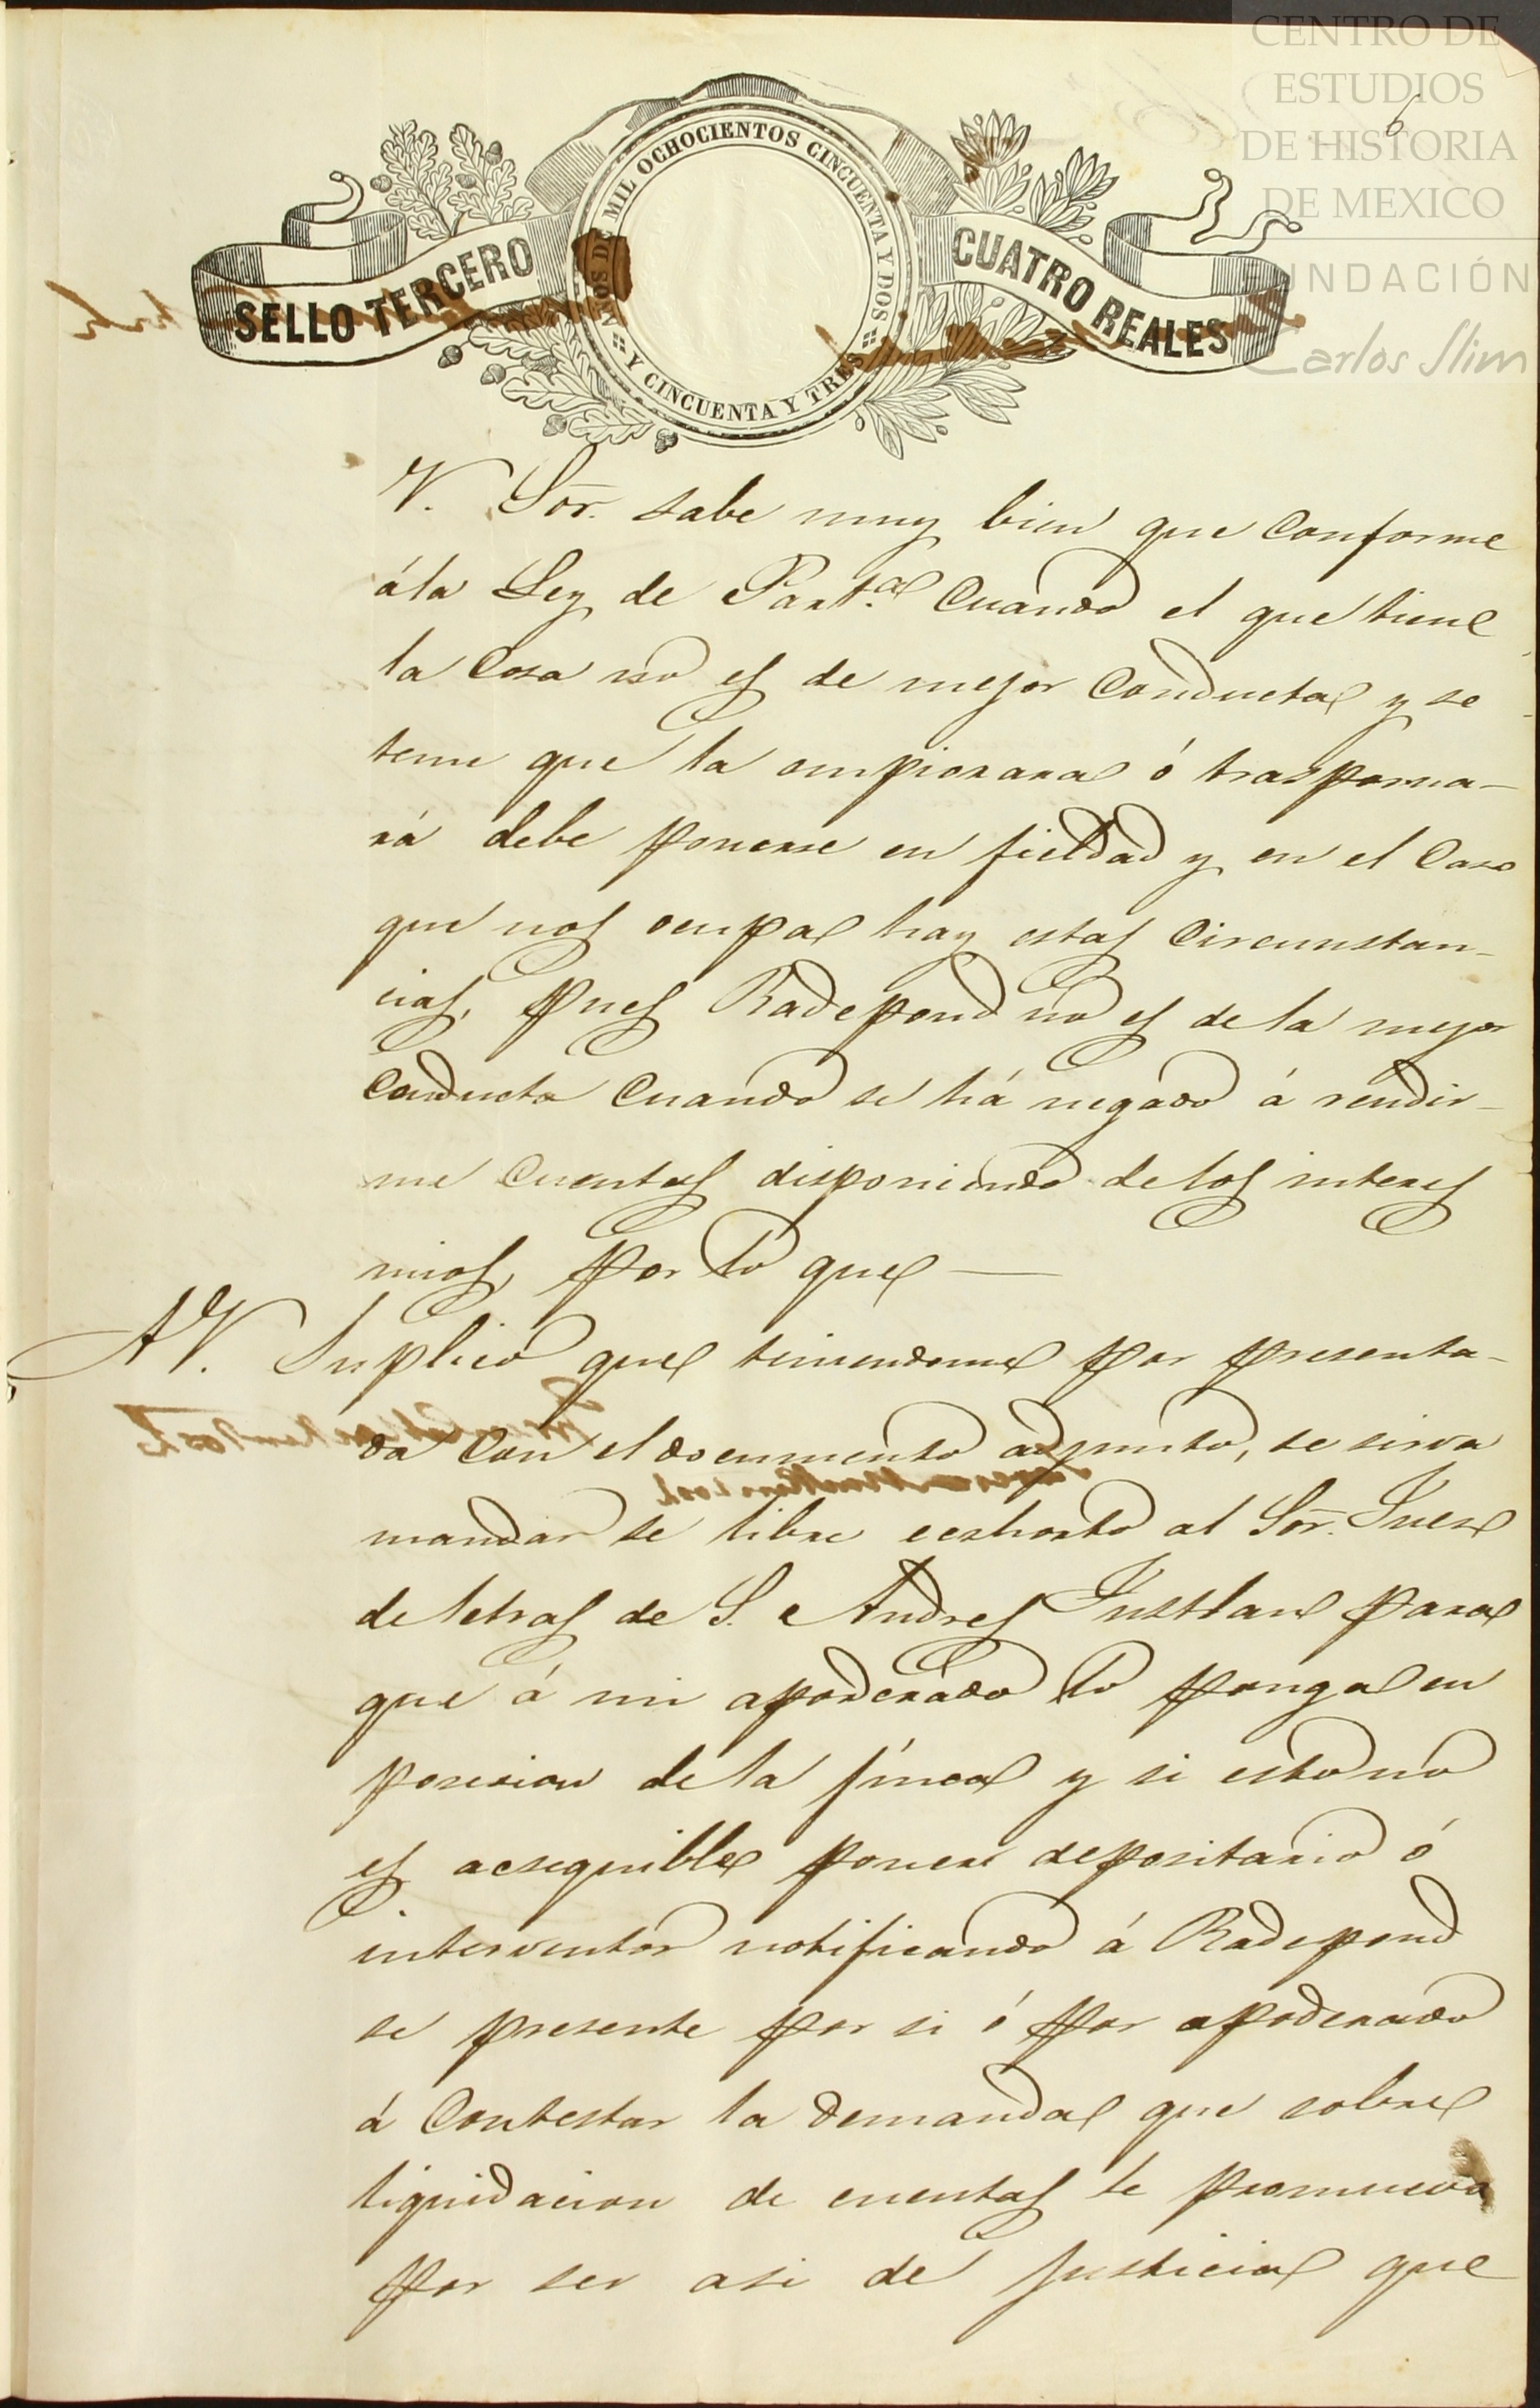 CENTRO DE
ESTUDIOS
DE HISTORIA
DE MEXICO
FUNDACIÓN
Carlos Slim
6
SELLO TERCERO
AÑOS DE MIL OCHOCIENTOS CINCUENTA Y DOS
Y CINCUENTA Y TRES
CUATRO REALES
V. Sōr. sabe muy bien que conforme
á la Ley de Part.a cuando el que tiene
la cosa no es de mejor conducta y se
teme que la empiorara ó trasporna-
rá debe ponerse en fieldad y en el caso
que nos ocupa hay estas circunstan-
cias, pues Radepond no es de la mejor
conducta cuando se há negado á rendir-
me cuentas disponiendo de los interes
mios, por lo que —
A V. Suplico que teniendome por presenta-
da con el documento adjunto, se sirva
mandar se libre ecshorto al Sōr. Juez
de letras de S. Andres Tustlan para
que á mi apoderado lo ponga en
posesion de la finca y si esto no
es acsequible poner depositario ó
interventor notificando á Radepond
se presente por si ó por apoderado
á contestar la demanda que sobre
liquidacion de cuentas le promueva
por ser asi de justicia que